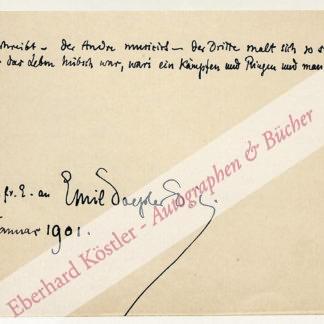 schreibt – der Andre musicirt – der Dritte malt sich so
das Leben hübsch war, wars ein Kämpfen und Ringen und man
fr. E. an Emil Doepler
Januar 1901.
Eberhard Köstler - Autographen & Bücher